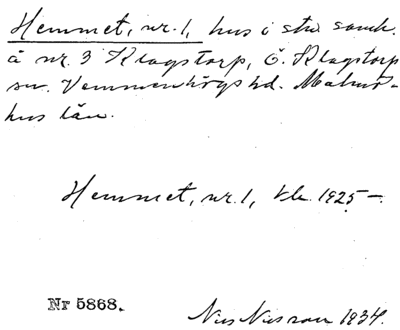 Hemmet, nr. 1, hus i stn samh.
å nr. 3 Klagstorp, Ö. Klagstorp
sn. Vemmenhögs hd. Malmö-
hus län.
Hemmet, nr. 1, 1925 –.
Nr 5868.
Nils Nilsson 1934.